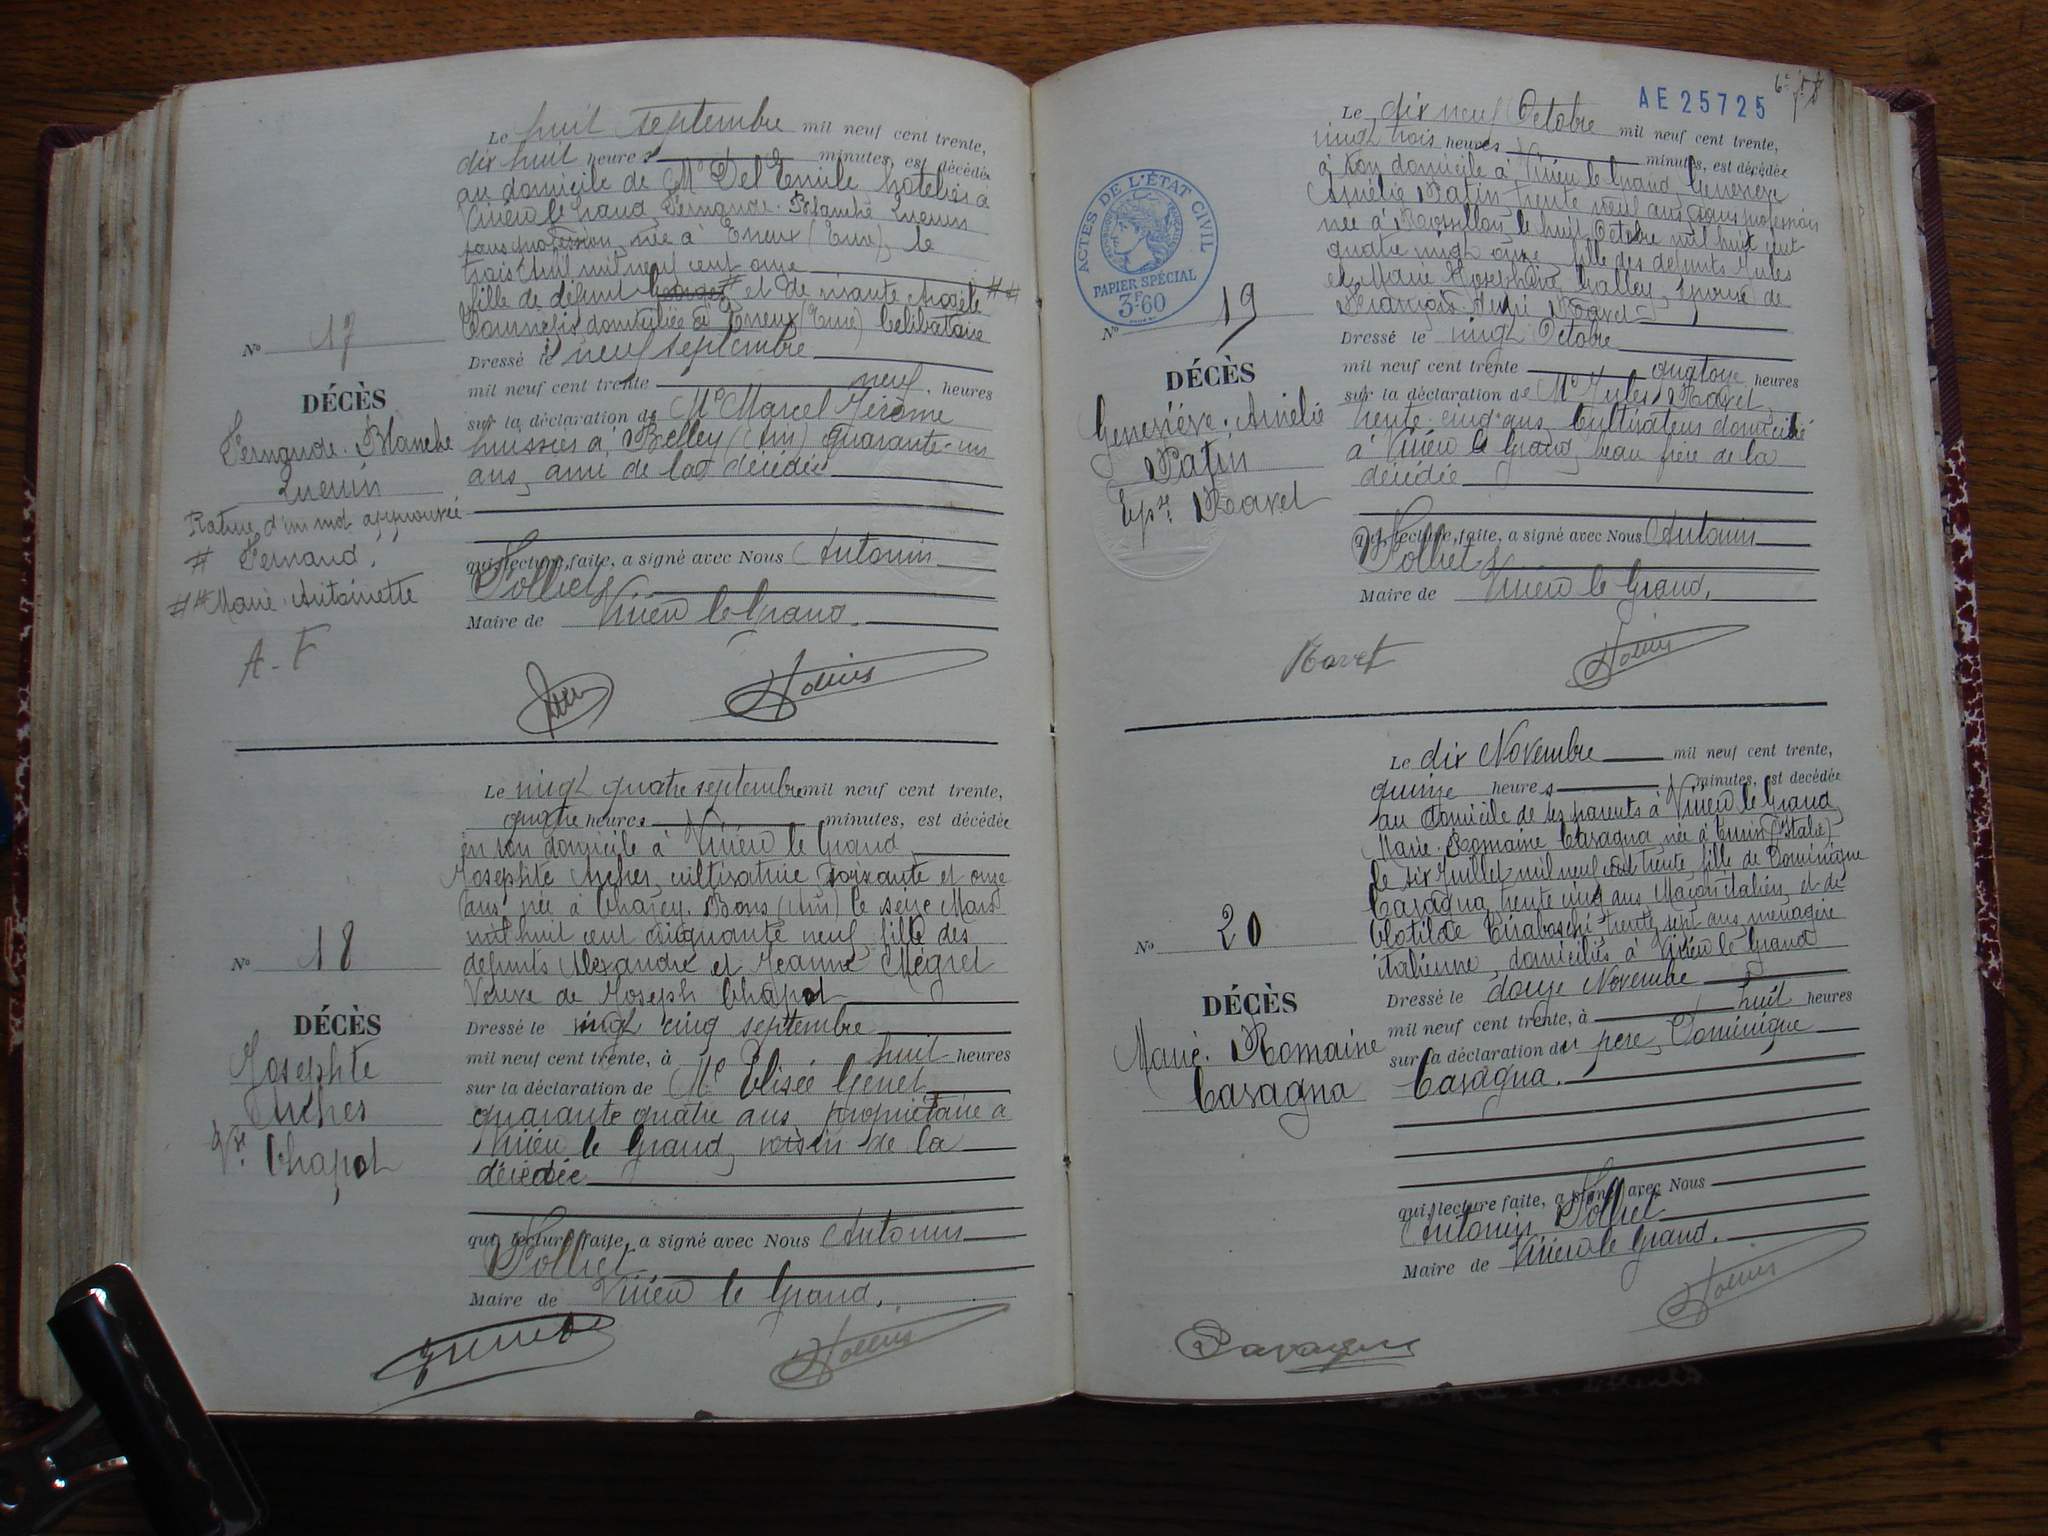 Le huit septembre mil neuf cent trente,
dix huit heures minutes, est décédée
au domicile de Mr Del Emile hotelier à
Virieu le Grand, Fernande. Blanche Quenin
sans profession, née à Evreux (Eure), le
trois Avril mil neuf cent onze
fille de défunt Georges # et de vivante Anaële ##
domiciliée à Evreux (Eure) Célibataire
Dressé le neuf septembre
mil neuf cent trente neuf, heures
sur la déclaration de Mr Marcel Jérôme
huissier à Belley (Ain) quarante-un
ans, ami de la décédée
qui, lecture faite, a signé avec Nous Antonin
Polliet
Maire de Virieu le Grand.
No 17
DÉCÈS
Fernande. Blanche
Quenin
Rature d'un mot approuvée
# Fernand.
## Marie. Antoinette
A-F
Le vingt quatre septembre mil neuf cent trente,
quatre heures minutes, est décédée
en son domicile à Virieu le Grand
Josephte Archer, cultivatrice, soixante et onze
ans, née à Charey. Bons (Ain) le seize Mars
mil huit cent cinquante neuf, fille des
défunts Alexandre et Jeanne Mégret
Veuve de Joseph Chapot
Dressé le vingt cinq septembre
mil neuf cent trente, à huit heures
sur la déclaration de Mr Elisée Genet
quarante quatre ans, propriétaire à
Virieu le Grand, voisin de la
décédée
qui, lecture faite, a signé avec Nous Antonin
Polliet
Maire de Virieu le Grand.
No 18
DÉCÈS
Josephte
Archer
Vve Chapot
AE 25725
Le dix neuf Octobre mil neuf cent trente,
vingt trois heures minutes, est décédée
à son domicile à Virieu le Grand, Genevieve
Amélie Patin trente neuf ans, sans profession
née à Rossillon, le huit Octobre mil huit cent
quatre vingt onze fille des défunts Jules
et Marie Josephine Challey, épouse de
François. André Ravet
Dressé le vingt Octobre
mil neuf cent trente quatorze heures
sur la déclaration de Mr Jules Ravet
trente-cinq ans, Cultivateur domicilié
à Virieu le Grand, beau frère de la
décédée
qui, lecture faite, a signé avec Nous Antonin
Polliet
Maire de Virieu le Grand.
ACTES DE L'ÉTAT CIVIL
RÉPUBLIQUE FRANÇAISE
PAPIER SPÉCIAL
3F.60
No 19
DÉCÈS
Geneviève. Amélie
Patin
Epse Ravet
Ravet
Le dix Novembre mil neuf cent trente,
quinze heures minutes, est décédée
au domicile de ses parents à Virieu le Grand
Marie. Romaine Casagna, née à Turin (Italie)
le six Juillet mil neuf cent trente, fille de Dominique
Casagna, trente cinq ans Maçon italien, et de
Clotilde Tiraboschi trente sept ans, ménagère
italienne, domiciliés à Virieu le Grand
Dressé le douze Novembre
mil neuf cent trente, à huit heures
sur la déclaration du père, Dominique
Casagna.
qui, lecture faite, a signé avec Nous
Antonin Polliet
Maire de Virieu le Grand.
No 20
DÉCÈS
Marie. Romaine
Casagna